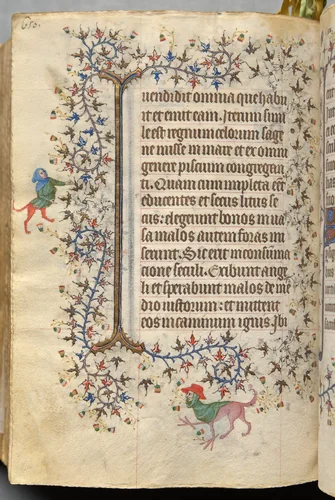 uendidit omnia que habu
it et emit eam. Iterum simi
le est regnum celorum sage
ne misse in mare et ex omni
genere piscium congregan
ti. Quam cum impleta eēt
educentes et secus litus se
ntes: elegerunt bonos in ua
sa malos autem foras mi
serunt. Sic erit in consuma
cione seculi. Exibunt ange
li et seperabunt malos de me
dio iustorum: et mittent
eos in caminum ignis. Ibi